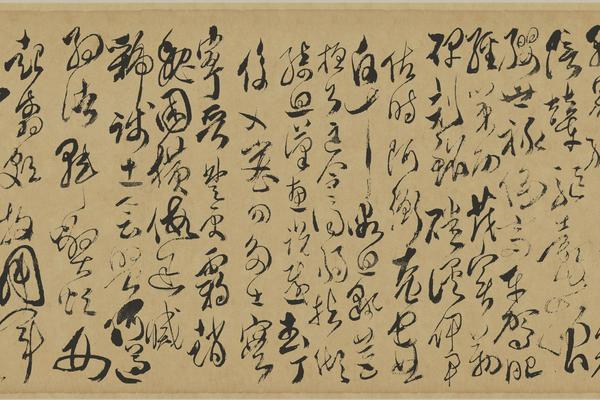 陪輦驅轂振
纓世祿侈富車駕肥
輕策功茂實勒
碑刻銘磻溪伊尹
佐時阿衡奄宅曲
阜微旦孰營
桓公匡合濟弱扶傾
綺回漢惠說感武丁
俊乂密勿多士寔
寧晉楚更霸趙
魏困橫假途滅
虢踐土會盟何遵
約法韓弊煩刑
起翦頗牧用軍